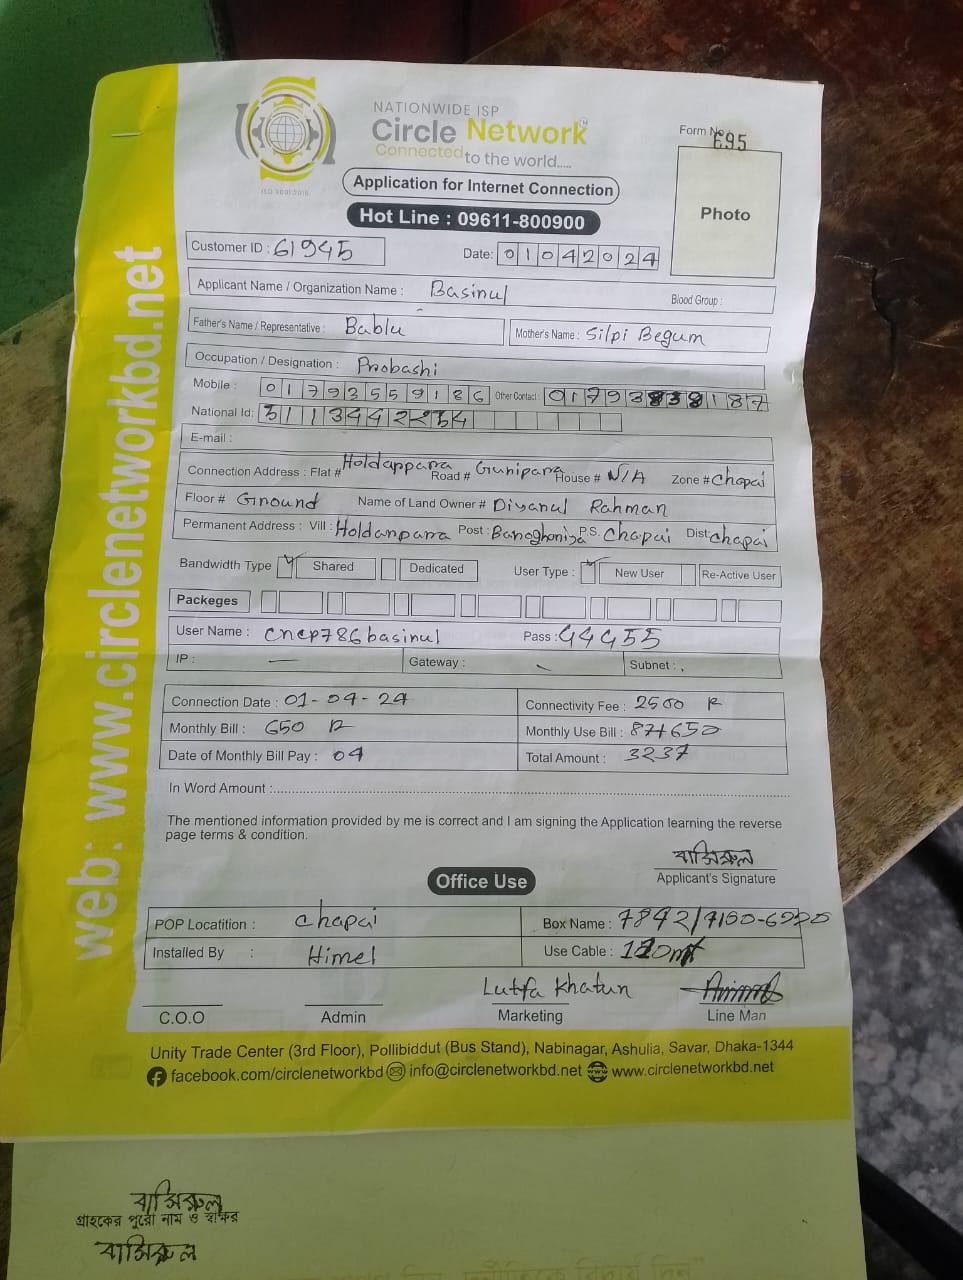 NATIONWIDE ISP
Circle Network
Connected to the world.....
ISO 9001:2015
Form No E95
Application for Internet Connection
Photo
Hot Line : 09611-800900
Customer ID : 61945
Date: 01042024
Applicant Name / Organization Name : Basinul
Blood Group :
Father's Name / Representative : Bablu
Mother's Name : Silpi Begum
Occupation / Designation : Probashi
Mobile : 01793559186 Other Contact : 01793838187
National Id: 3113442234
E-mail :
Connection Address : Flat # Holdapparra Road # Gunipara House # N/A Zone # Chapai
Floor # Ground Name of Land Owner # Diyanul Rahman
Permanent Address : Vill : Holdanparra Post : P.S. Chapai Dist: chapai
Bandwidth Type Shared Dedicated User Type : New User Re-Active User
Packeges
User Name : cncp786basinul Pass : 44455
IP : — Gateway : Subnet :
Connection Date : 01-04-24 Connectivity Fee : 2500
Monthly Bill : 650 Monthly Use Bill : 87+650
Date of Monthly Bill Pay : 04 Total Amount : 3237
In Word Amount :
The mentioned information provided by me is correct and I am signing the Application learning the reverse
page terms & condition.
বাসিরুল
Applicant's Signature
Office Use
POP Locatition : chapai Box Name :
Installed By : Himel Use Cable : 120mt
Lutfa Khatun
C.O.O Admin Marketing Line Man
web: www.circlenetworkbd.net
Unity Trade Center (3rd Floor), Pollibiddut (Bus Stand), Nabinagar, Ashulia, Savar, Dhaka-1344
facebook.com/circlenetworkbd info@circlenetworkbd.net www.circlenetworkbd.net
বাসিরুল
গ্রাহকের পুরো নাম ও স্বাক্ষর
বাসিরুল